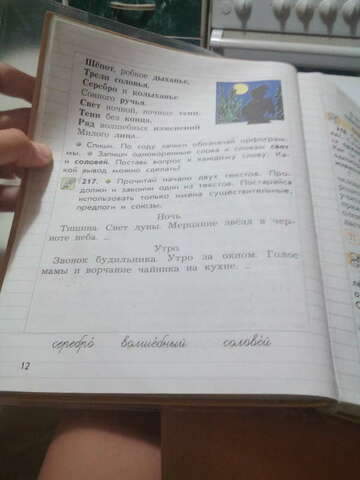 Шёпот, робкое дыханье,
Трели соловья,
Серебро и колыханье
Сонного ручья.
Свет ночной, ночные тени,
Тени без конца.
Ряд волшебных изменений
Милого лица.
Спиши. По ходу записи обозначай орфограм-
мы. Запиши однокоренные слова к словам свет
и соловей. Поставь вопрос к каждому слову. Ка-
кой вывод можно сделать?
217. Прочитай начало двух текстов. Про-
должи и закончи один из текстов. Постарайся
использовать только имена существительные,
предлоги и союзы.
Ночь
Тишина. Свет луны. Мерцание звёзд в чер-
ноте неба. ...
Утро
Звонок будильника. Утро за окном. Голос
мамы и ворчание чайника на кухне. ...
серебро́ волше́бный солове́й
12